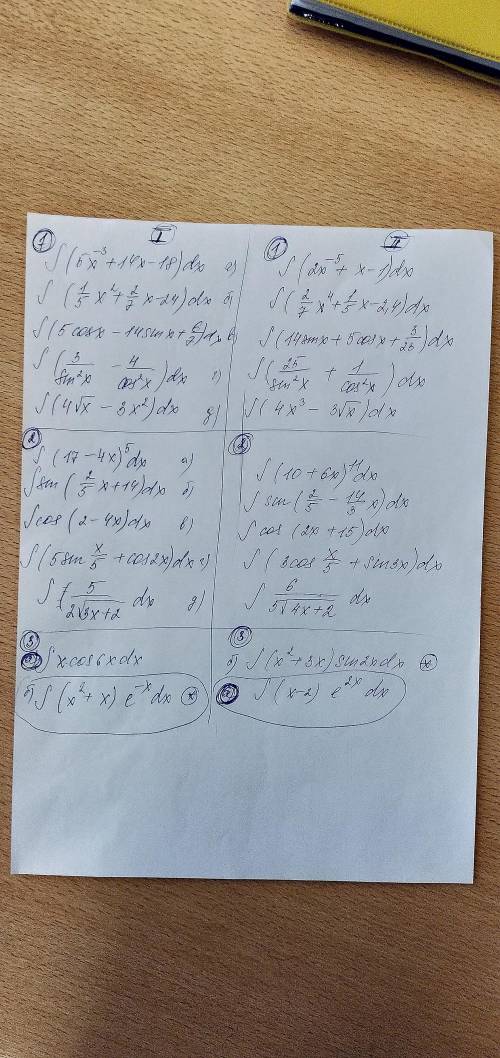 I
1
∫(5x⁻³+14x-18)dx а)
∫(1/5 x²+2/7 x-24)dx б)
∫(5cosx-14sinx+6/7)dx в)
∫(3/sin²x - 4/cos²x)dx г)
∫(4√x - 3x²)dx д)
2
∫(17-4x)⁵dx а)
∫sin(2/5 x+14)dx б)
∫cos(2-4x)dx в)
∫(5sin x/5 + cos2x)dx г)
∫ 5/(2√3x+2) dx д)
3
а) ∫x·cos6xdx
б) ∫(x²+x)e⁻ˣdx *
II
1
∫(2x⁻⁵+x-1)dx
∫(2/7 x⁴+1/5 x-2,4)dx
∫(14sinx+5cosx+3/23)dx
∫(25/sin²x + 1/cos²x)dx
∫(4x³-3√x)dx
2
∫(10+6x)¹¹dx
∫sin(2/5 - 14/3 x)dx
∫cos(2x+15)dx
∫(3cos x/5 + sin3x)dx
∫ 6/(5√4x+2) dx
3
б) ∫(x²+3x)sin2xdx *
а) ∫(x-2)e²ˣdx